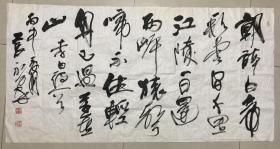 朝辭白帝
彩雲間千里
江陵一日還
兩岸猿聲
啼不住輕
舟已過萬重
山 李白詩
丙申